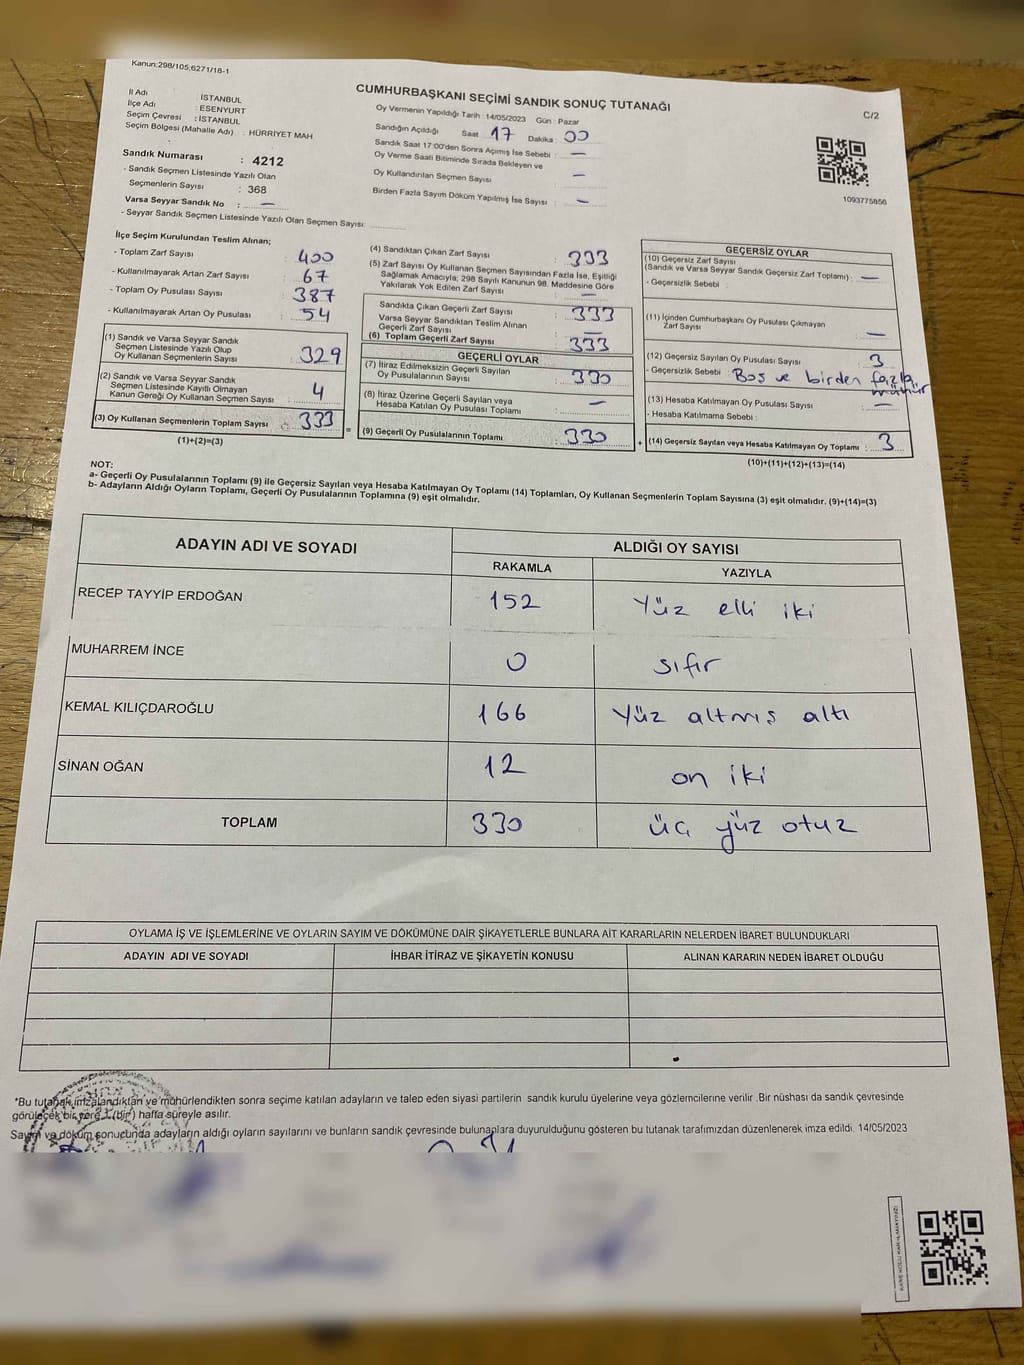 Kanun;298/105,6271/18-1
CUMHURBAŞKANI SEÇİMİ SANDIK SONUÇ TUTANAĞI
C/2
İl Adı : İSTANBUL
İlçe Adı : ESENYURT
Seçim Çevresi : İSTANBUL
Seçim Bölgesi (Mahalle Adı) : HÜRRİYET MAH
Sandık Numarası : 4212
- Sandık Seçmen Listesinde Yazılı Olan
Seçmenlerin Sayısı : 368
Varsa Seyyar Sandık No : —
- Seyyar Sandık Seçmen Listesinde Yazılı Olan Seçmen Sayısı:
Oy Vermenin Yapıldığı Tarih : 14/05/2023 Gün : Pazar
Sandığın Açıldığı Saat 17 Dakika : 00
Sandık Saat 17:00'den Sonra Açılmış İse Sebebi : —
Oy Verme Saati Bitiminde Sırada Bekleyen ve
Oy Kullandırılan Seçmen Sayısı : —
Birden Fazla Sayım Döküm Yapılmış İse Sayısı : —
1093775856
İlçe Seçim Kurulundan Teslim Alınan;
- Toplam Zarf Sayısı : 400
- Kullanılmayarak Artan Zarf Sayısı : 67
- Toplam Oy Pusulası Sayısı : 387
- Kullanılmayarak Artan Oy Pusulası : 54
(1) Sandık ve Varsa Seyyar Sandık
Seçmen Listesinde Yazılı Olup
Oy Kullanan Seçmenlerin Sayısı : 329
(2) Sandık ve Varsa Seyyar Sandık
Seçmen Listesinde Kayıtlı Olmayan
Kanun Gereği Oy Kullanan Seçmen Sayısı : 4
(3) Oy Kullanan Seçmenlerin Toplam Sayısı : 333
(1)+(2)=(3)
(4) Sandıktan Çıkan Zarf Sayısı : 333
(5) Zarf Sayısı Oy Kullanan Seçmen Sayısından Fazla İse, Eşitliği
Sağlamak Amacıyla; 298 Sayılı Kanunun 98. Maddesine Göre
Yakılarak Yok Edilen Zarf Sayısı : —
Sandıkta Çıkan Geçerli Zarf Sayısı : 333
Varsa Seyyar Sandıktan Teslim Alınan
Geçerli Zarf Sayısı : —
(6) Toplam Geçerli Zarf Sayısı : 333
GEÇERLİ OYLAR
(7) İtiraz Edilmeksizin Geçerli Sayılan
Oy Pusulalarının Sayısı : 330
(8) İtiraz Üzerine Geçerli Sayılan veya
Hesaba Katılan Oy Pusulası Toplamı : —
= (9) Geçerli Oy Pusulalarının Toplamı : 330
GEÇERSİZ OYLAR
(10) Geçersiz Zarf Sayısı
(Sandık ve Varsa Seyyar Sandık Geçersiz Zarf Toplamı) : —
- Geçersizlik Sebebi :
(11) İçinden Cumhurbaşkanı Oy Pusulası Çıkmayan
Zarf Sayısı : —
(12) Geçersiz Sayılan Oy Pusulası Sayısı : 3
- Geçersizlik Sebebi : Boş ve birden fazla
mühür
(13) Hesaba Katılmayan Oy Pusulası Sayısı : —
- Hesaba Katılmama Sebebi :
+ (14) Geçersiz Sayılan veya Hesaba Katılmayan Oy Toplamı : 3
(10)+(11)+(12)+(13)=(14)
NOT:
a- Geçerli Oy Pusulalarının Toplamı (9) ile Geçersiz Sayılan veya Hesaba Katılmayan Oy Toplamı (14) Toplamları, Oy Kullanan Seçmenlerin Toplam Sayısına (3) eşit olmalıdır. (9)+(14)=(3)
b- Adayların Aldığı Oyların Toplamı, Geçerli Oy Pusulalarının Toplamına (9) eşit olmalıdır.
ADAYIN ADI VE SOYADI
ALDIĞI OY SAYISI
RAKAMLA YAZIYLA
RECEP TAYYİP ERDOĞAN 152 Yüz elli iki
MUHARREM İNCE 0 sıfır
KEMAL KILIÇDAROĞLU 166 Yüz altmış altı
SİNAN OĞAN 12 on iki
TOPLAM 330 üç yüz otuz
OYLAMA İŞ VE İŞLEMLERİNE VE OYLARIN SAYIM VE DÖKÜMÜNE DAİR ŞİKAYETLERLE BUNLARA AİT KARARLARIN NELERDEN İBARET BULUNDUKLARI
ADAYIN ADI VE SOYADI İHBAR İTİRAZ VE ŞİKAYETİN KONUSU ALINAN KARARIN NEDEN İBARET OLDUĞU
*Bu tutanak imzalandıktan ve mühürlendikten sonra seçime katılan adayların ve talep eden siyasi partilerin sandık kurulu üyelerine veya gözlemcilerine verilir .Bir nüshası da sandık çevresinde
görülecek bir yere 1 (bir) hafta süreyle asılır.
Sayım ve döküm sonucunda adayların aldığı oyların sayılarını ve bunların sandık çevresinde bulunanlara duyurulduğunu gösteren bu tutanak tarafımızdan düzenlenerek imza edildi 14/05/2023